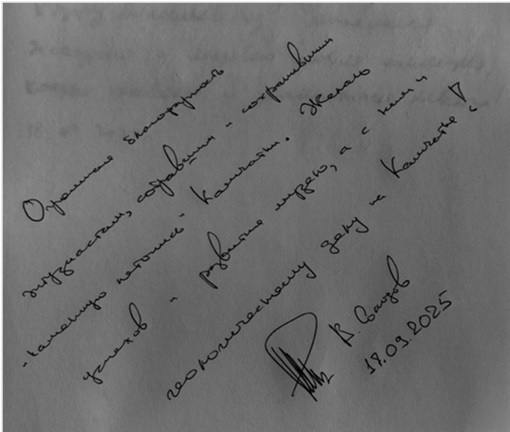 Огромная благодарность
энтузиастам, собравшим и сохранившим
"каменную летопись" Камчатки. Желаю
успехов и развития музею, а с ним и
геологическому делу на Камчатке!
В.
17.09.2025